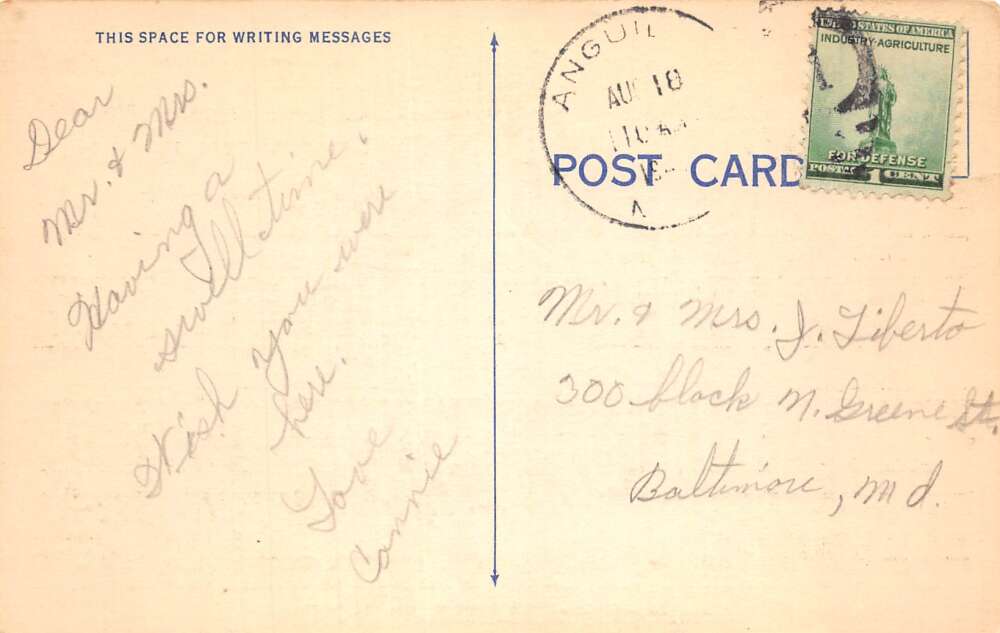 THIS SPACE FOR WRITING MESSAGES
Dear
Mr. & Mrs.
Having a
swell time.
Wish you were
here.
Love
Connie
ANGUIL
AUG 18
POST CARD
UNITED STATES OF AMERICA
INDUSTRY·AGRICULTURE
FOR DEFENSE
Mr. & Mrs. J. Liberto
300 block N. Greene St.
Baltimore, Md.